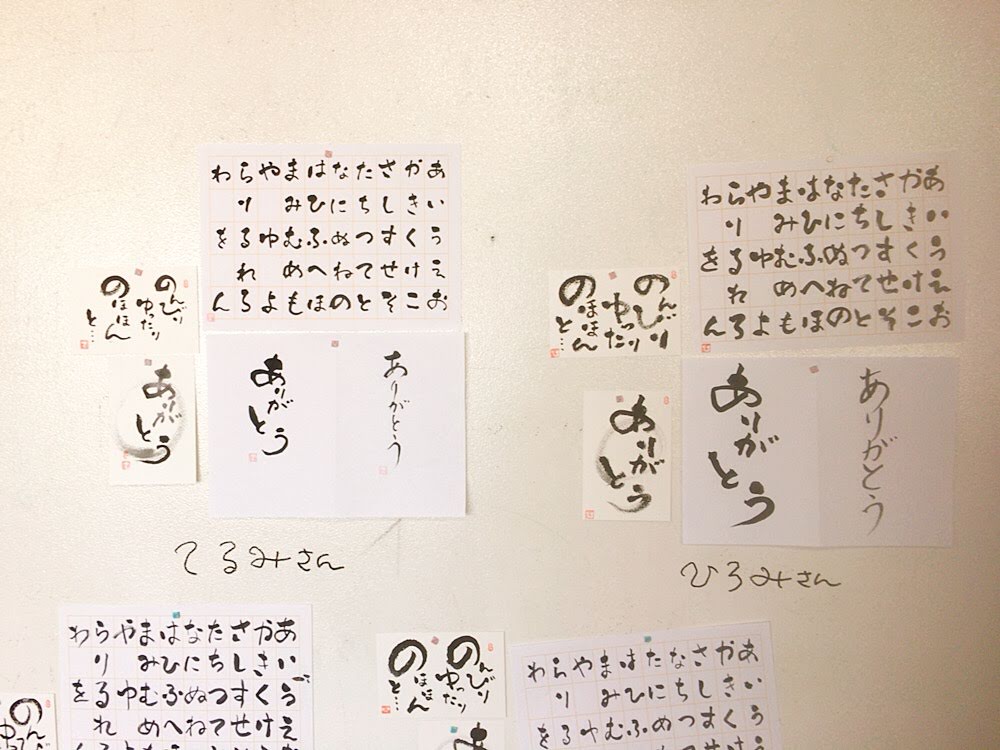 あいうえお
かきくけこ
さしすせそ
たちつてと
なにぬねの
はひふへほ
まみむめも
やゆよ
らりるれろ
わをん
のんびり
ゆったり
のほほん
と…
ありがとう
ありがとう
ありがとう
てるみさん
あいうえお
かきくけこ
さしすせそ
たちつてと
なにぬねの
はひふへほ
まみむめも
やゆよ
らりるれろ
わをん
のんびり
ゆったり
のほほん
と…
ありがとう
ありがとう
ありがとう
ひろみさん
あいうえ
かきくけ
さしすせ
たちつて
なにぬね
はひふへ
まみむめ
やゆ
らりるれ
わを
のんびり
ゆったり
のほほん
と…
あいう
かきく
さしす
なちつ
たにぬ
はひふ
まみむ
やゆ
らりる
わを